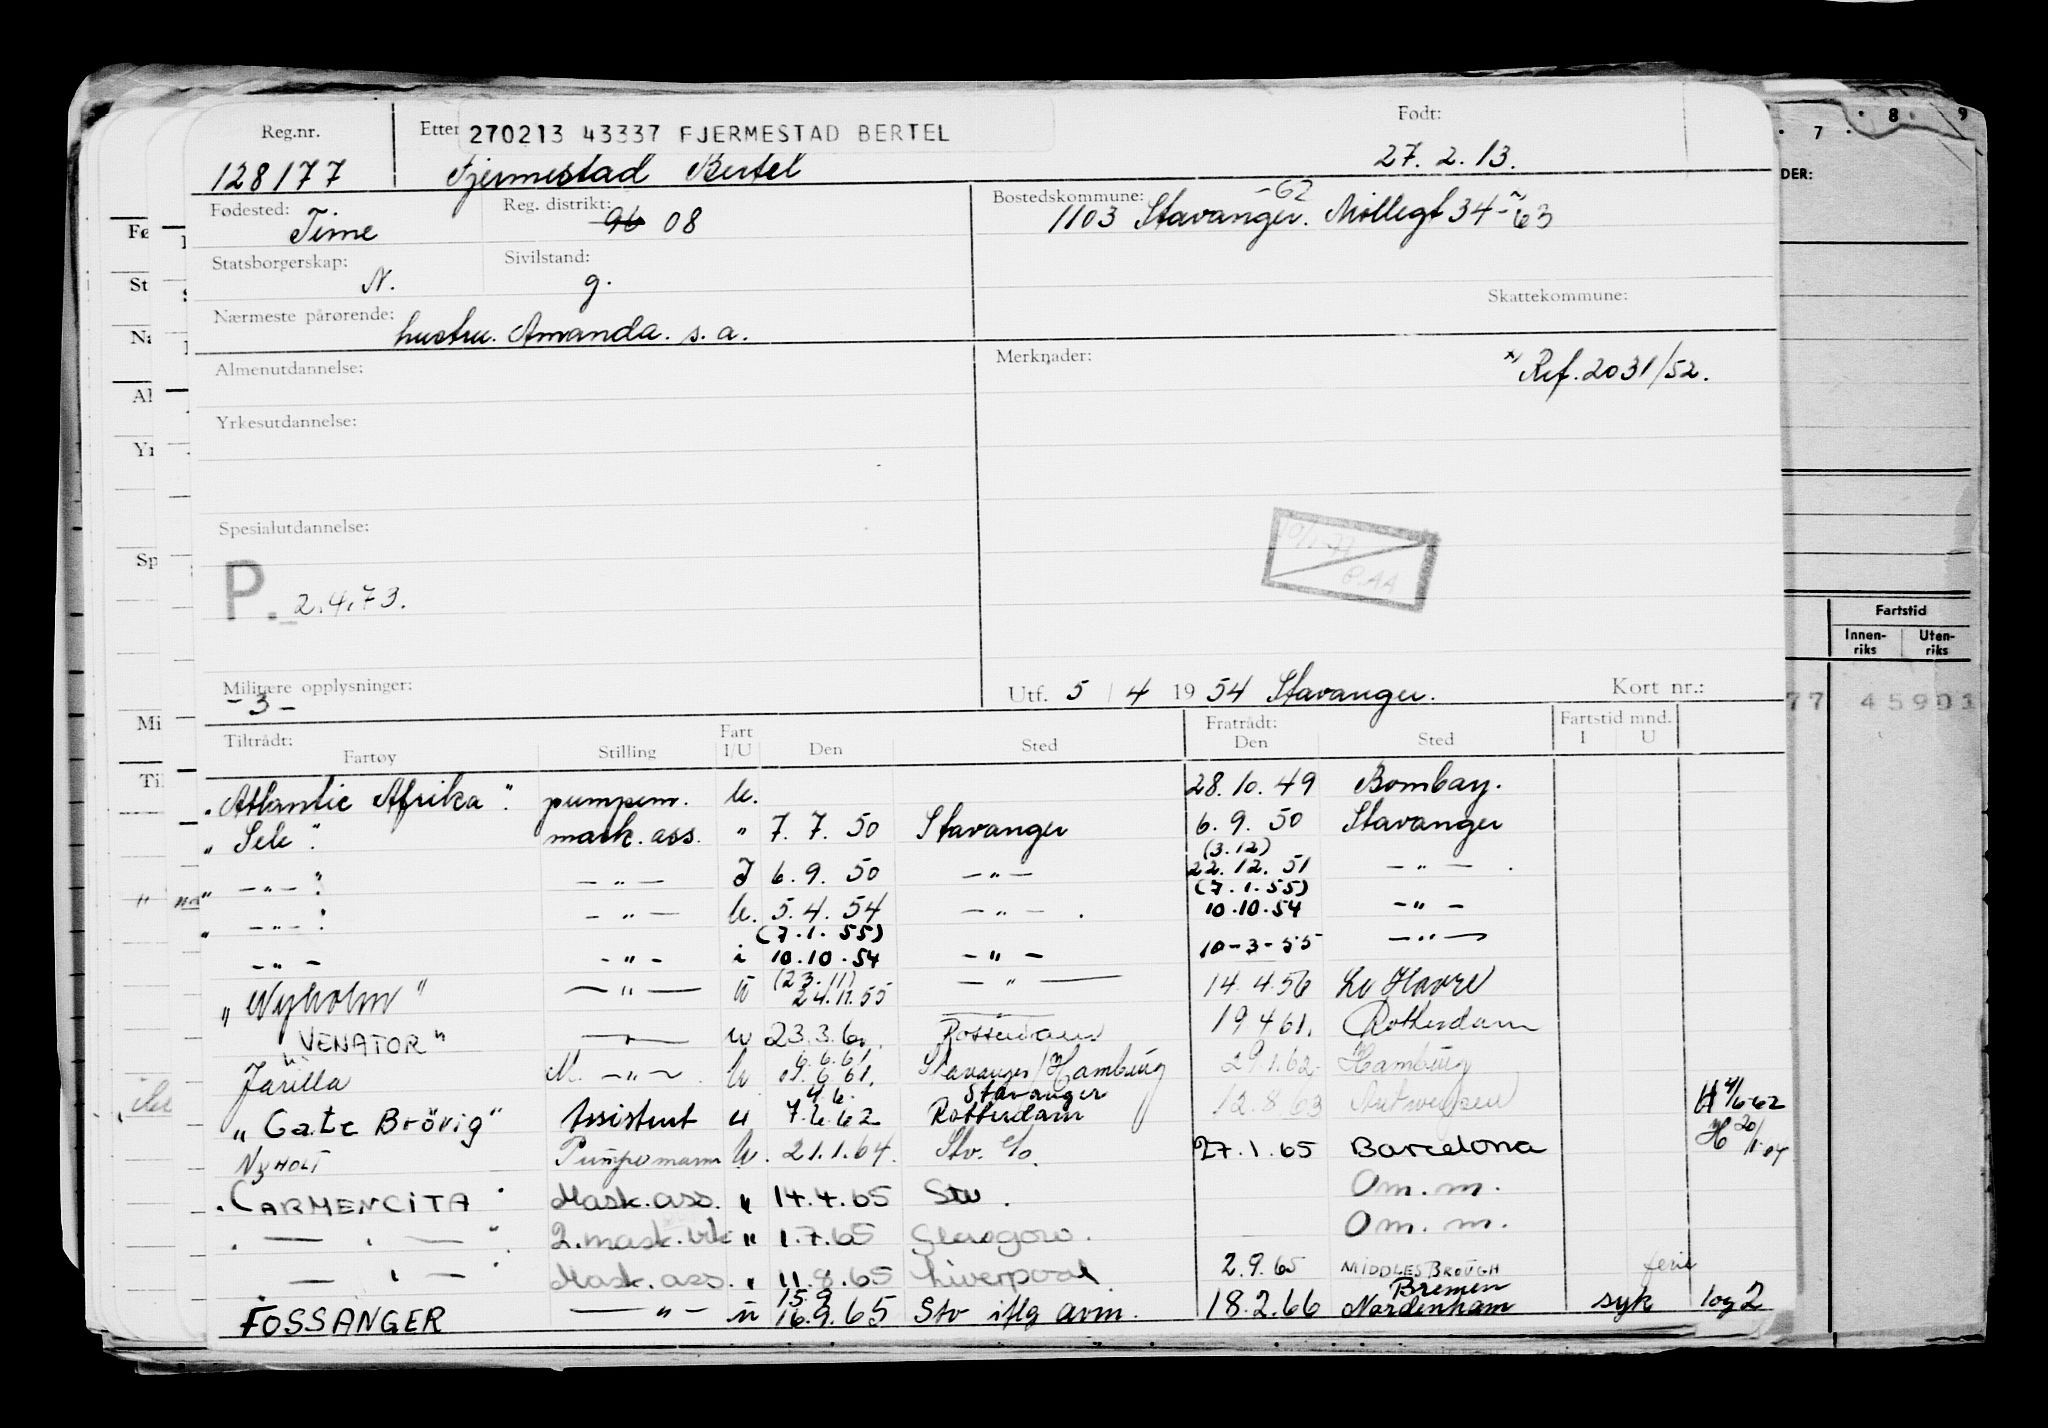 Reg.nr. Etter 270213 43337 FJERMESTAD BERTEL Født:
128177 Fjermestad Bertel 27. 2. 13.
Fødested: Time Reg. distrikt: 96 08 Bostedskommune: 1103 Stavanger. -62 Møllegt 34 - 63
Statsborgerskap: N. Sivilstand: g.
Skattekommune:
Nærmeste pårørende: hustru. Amanda. s. a.
Almenutdannelse: Merknader: x) Ref. 2031/52.
Yrkesutdannelse:
Spesialutdannelse:
P. 2.4.73.
Militære opplysninger: Utf. 5 / 4 19 54 Stavanger. Kort nr.:
- 3 -
Tiltrådt: Fratrådt: Fartstid mnd.
Fartøy Stilling Fart I/U Den Sted Den Sted I U
"Atlantic Afrika". pumpem. U. 28. 10. 49 Bombay.
"Sele". mask. ass. " 7. 7. 50 Stavanger 6. 9. 50 Stavanger
(3.12)
" — " — " — " — I 6. 9. 50 — " — 22. 12. 51 — " — .
(7. 1. 55)
" — " — " — " — U. 5. 4. 54 — " — . 10.10.54 — " —
(7. 1. 55)
— " — — " — i 10.10.54 — " — 10-3-55 — " —
(23.11)
"Nyholm" — " — U 24.11.55 — " — 14.4.56 Le Havre
"VENATOR" — " — U 23.3.6 Rotterdam 19.4.61. Rotterdam
6.6.61
Jarilla M. — " — U 09.6.61. Stavanger/Hamburg 29.1.62 Hamburg
4.6. Stavanger
"Cate Brövig" Assistent u 7.6.62 Rotterdam 12.8.63 Antwerpen H 4/6-62
NyHOLT Pumpemann U. 21.1.64. Stv. 27.1.65 Barcelona H 20/1-64
"CARMENCITA" Mask. ass. " 14.4.65 Stv. Om. m.
" — " — " 2. mask. " 1.7.65 Om. m.
— " — " Mask. ass. " 11.8.65 Liverpool 2.9.65 MIDDLESBROUGH ferie
15.9 Bremen
FOSSANGER — " — u 16.9.65 Stv iflg avm. 18.2.66 Nordenham syk log 2
7 8 9
DER:
Fartstid
Innen-riks Uten-riks
77 45901
Fø
St
Na
Al
Yr
Sp
Mi
Ti